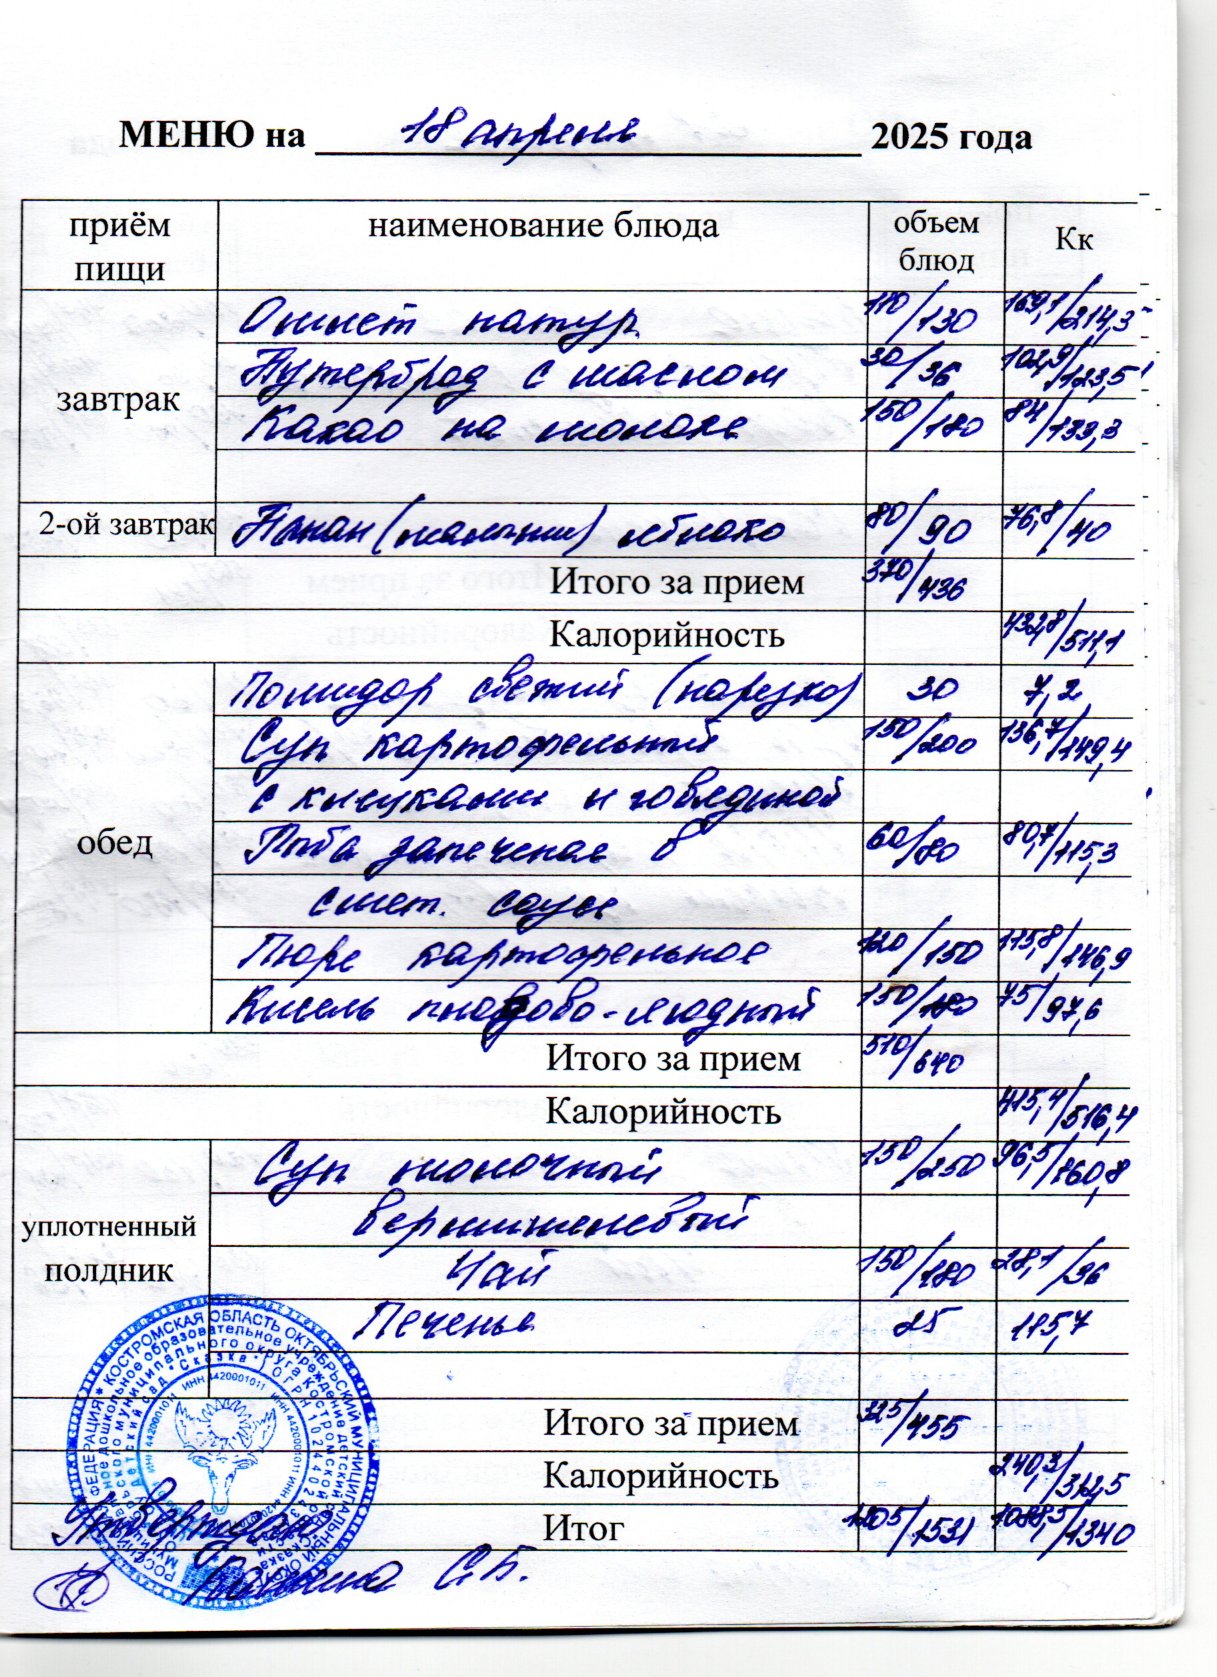 МЕНЮ на 18 апреля 2025 года
приём пищи наименование блюда объем блюд Кк
завтрак
Омлет натур. 110/130 169,1/214,3
Бутерброд с маслом 30/36 102,9/123,5
Какао на молоке 150/180 84/133,3
2-ой завтрак Банан (малыши) яблоко 80/90 76,8/40
Итого за прием 370/436
Калорийность 432,8/511,1
обед
Помидор свежий (нарезка) 30 7,2
Суп картофельный 150/200 136,7/149,4
с клецками и говядиной
Рыба запеченая в 60/80 80,7/115,3
смет. соусе
Пюре картофельное 120/150 115,8/146,9
Кисель плодово-ягодный 150/180 75/97,6
Итого за прием 510/640
Калорийность 415,4/516,4
уплотненный полдник
Суп молочный 150/250 96,5/160,8
вермишелевый
Чай 150/180 28,1/36
Печенье 25 115,7
Итого за прием 325/455
Калорийность 240,3/312,5
Итог 1205/1531 1088,5/1340
КОСТРОМСКАЯ ОБЛАСТЬ ОКТЯБРЬСКИЙ МУНИЦИПАЛЬНЫЙ ОКРУГ
дошкольное образовательное учреждение детский сад
муниципального округа Костромской области
детский сад "Сказка"
ИНН 4420001011
С.Б.